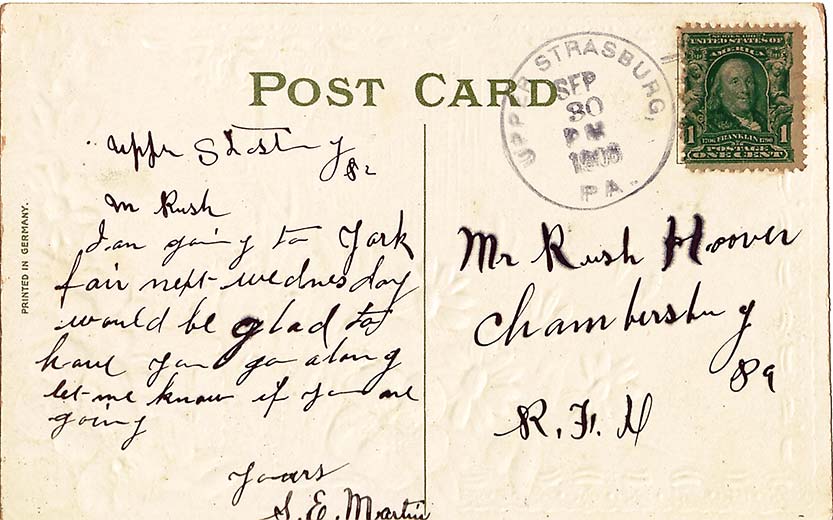 POST CARD
PRINTED IN GERMANY.
UPPER STRASBURG,
SEP
30
PM
PA.
SERIES 1902
UNITED STATES OF
AMERICA
1 1706 FRANKLIN 1790 1
POSTAGE
ONE CENT
Upper
Rush
I am going to York
fair next wednesday
would be glad to
have you go along
let me know if you are
going
Yours
S. E. Martin
Mr Rush Hoover
Chambersburg
R. F. D